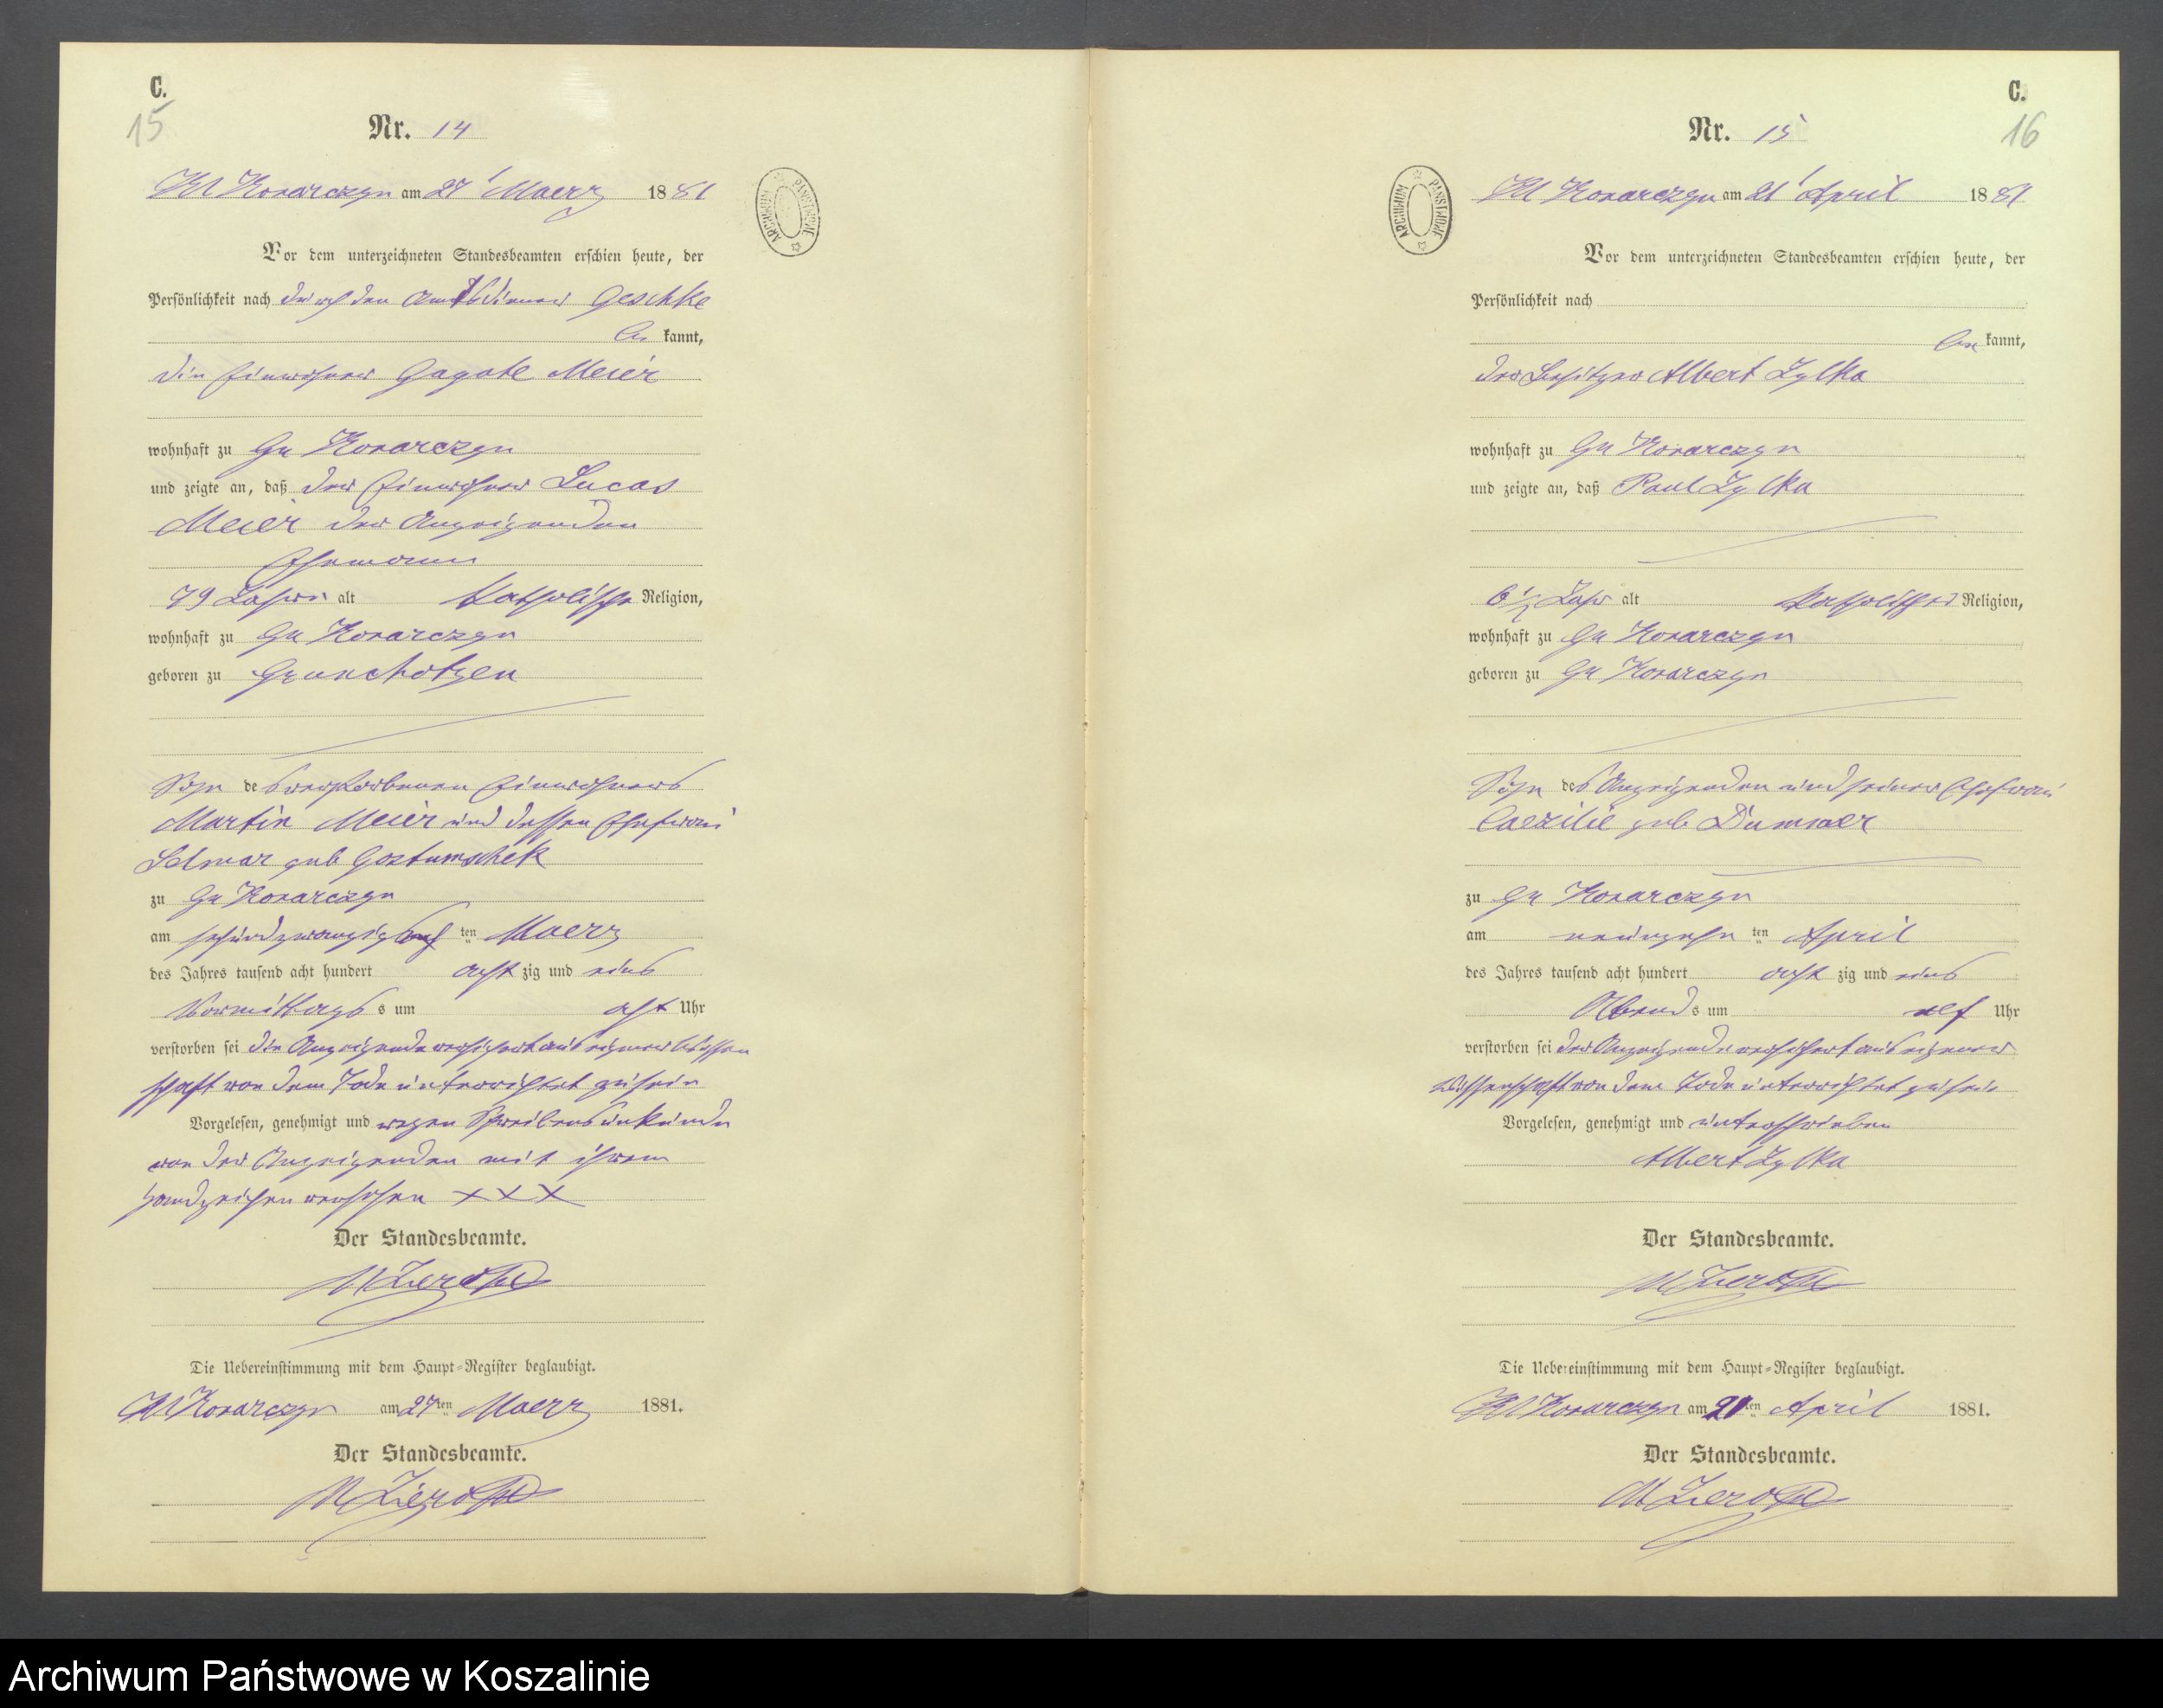 C.
15
Nr. 14
Kl Konarczyn am 27' Maerz 1881
ARCHIWUM PAŃSTWOWE
Vor dem unterzeichneten Standesbeamten erschien heute, der
Persönlichkeit nach durch den Amtsdiener Geschke
kannt,
die Einwohner Gagate Meier
wohnhaft zu Gr Konarczyn
und zeigte an, daß der Einwohner Lucas
Meier der Anzeigenden
Ehemann
79 Jahre alt katholische Religion,
wohnhaft zu Gr Konarczyn
geboren zu Grunchotzen
Sohn des verstorbenen Einwohners
Martin Meier und dessen Ehefrau
geb
zu Gr Konarczyn
am sechsundzwanzig ten Maerz
des Jahres tausend acht hundert acht zig und eins
Vormittags s um acht Uhr
verstorben sei die Anzeigende versichert aus eigener Wissen
schaft von dem Tode unterrichtet zu sein
Vorgelesen, genehmigt und wegen Schreibensunkunde
von der Anzeigenden mit ihrem
Handzeichen versehen XXX
Der Standesbeamte.
Die Uebereinstimmung mit dem Haupt-Register beglaubigt.
Kl Konarczyn am 27ten Maerz 1881.
Der Standesbeamte.
C.
16
Nr. 15
Kl Konarczyn am 21' April 1881
ARCHIWUM PAŃSTWOWE
Vor dem unterzeichneten Standesbeamten erschien heute, der
Persönlichkeit nach
kannt,
der Besitzer Albert Zylka
wohnhaft zu Gr Konarczyn
und zeigte an, daß Paul Zylka
6 1/2 Jahr alt katholischer Religion,
wohnhaft zu Gr Konarczyn
geboren zu Gr Konarczyn
Sohn des Anzeigenden und seiner Ehefrau
Caezilie geb Dummer
zu Gr Konarczyn
am neunzehn ten April
des Jahres tausend acht hundert acht zig und eins
Abends um elf Uhr
verstorben sei der Anzeigende versichert aus eigener
Wissenschaft von dem Tode unterrichtet zu sein
Vorgelesen, genehmigt und unterschrieben
Albert Zylka
Der Standesbeamte.
Die Uebereinstimmung mit dem Haupt-Register beglaubigt.
Kl Konarczyn am 21ten April 1881.
Der Standesbeamte.
Archiwum Państwowe w Koszalinie